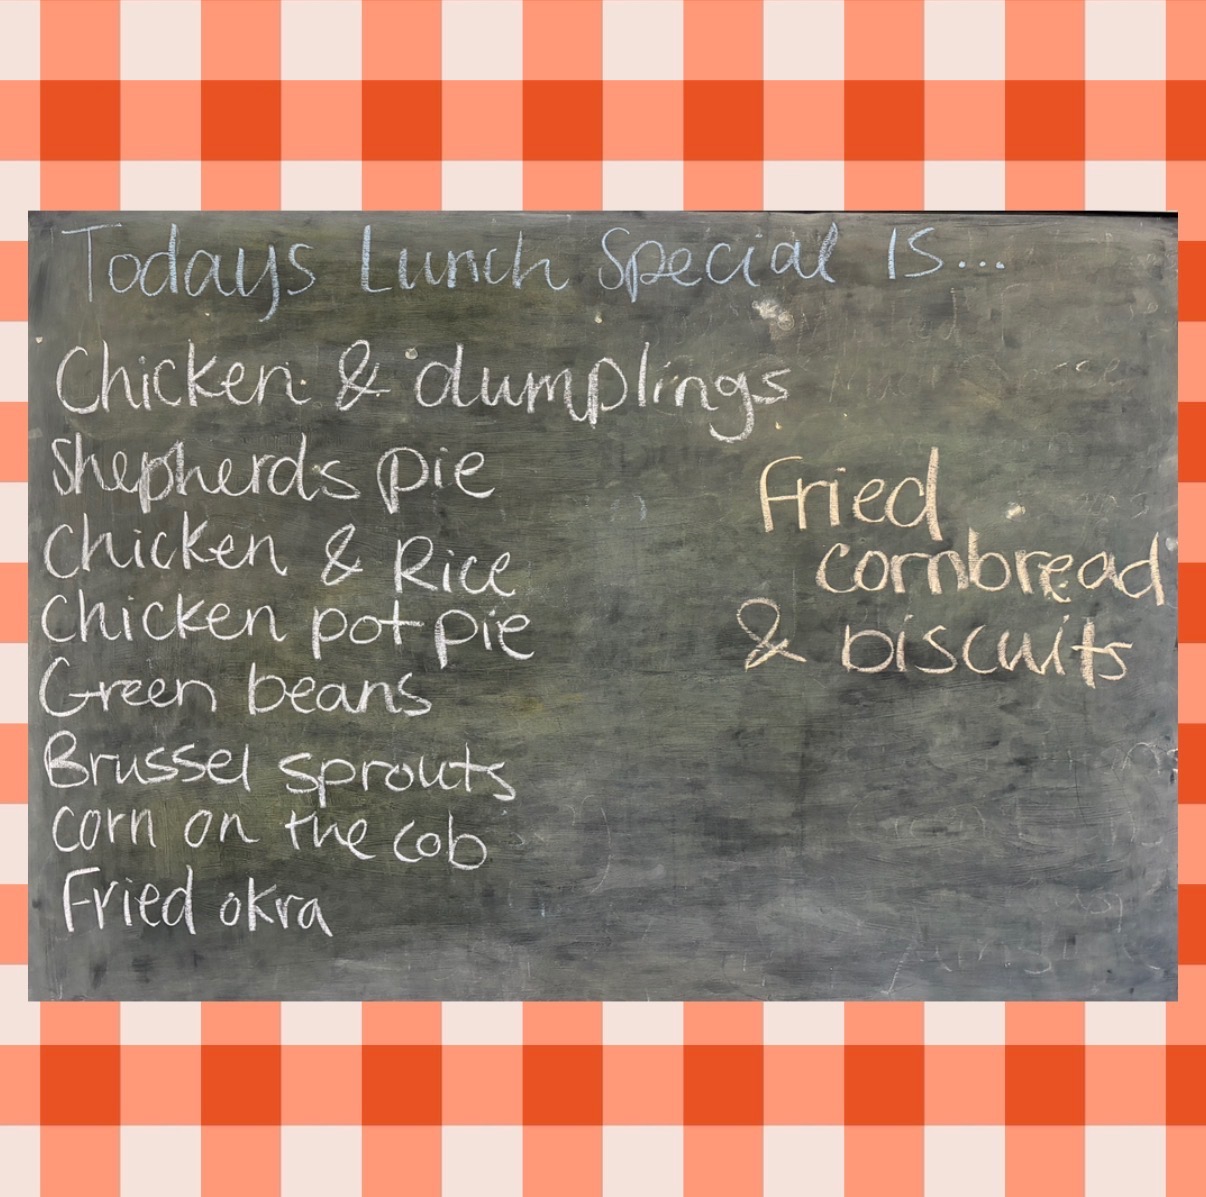 Todays Lunch Special IS...
Chicken & dumplings
Shepherds pie
Chicken & Rice
Chicken pot pie
Green beans
Brussel sprouts
Corn on the cob
Fried okra
Fried
cornbread
& biscuits